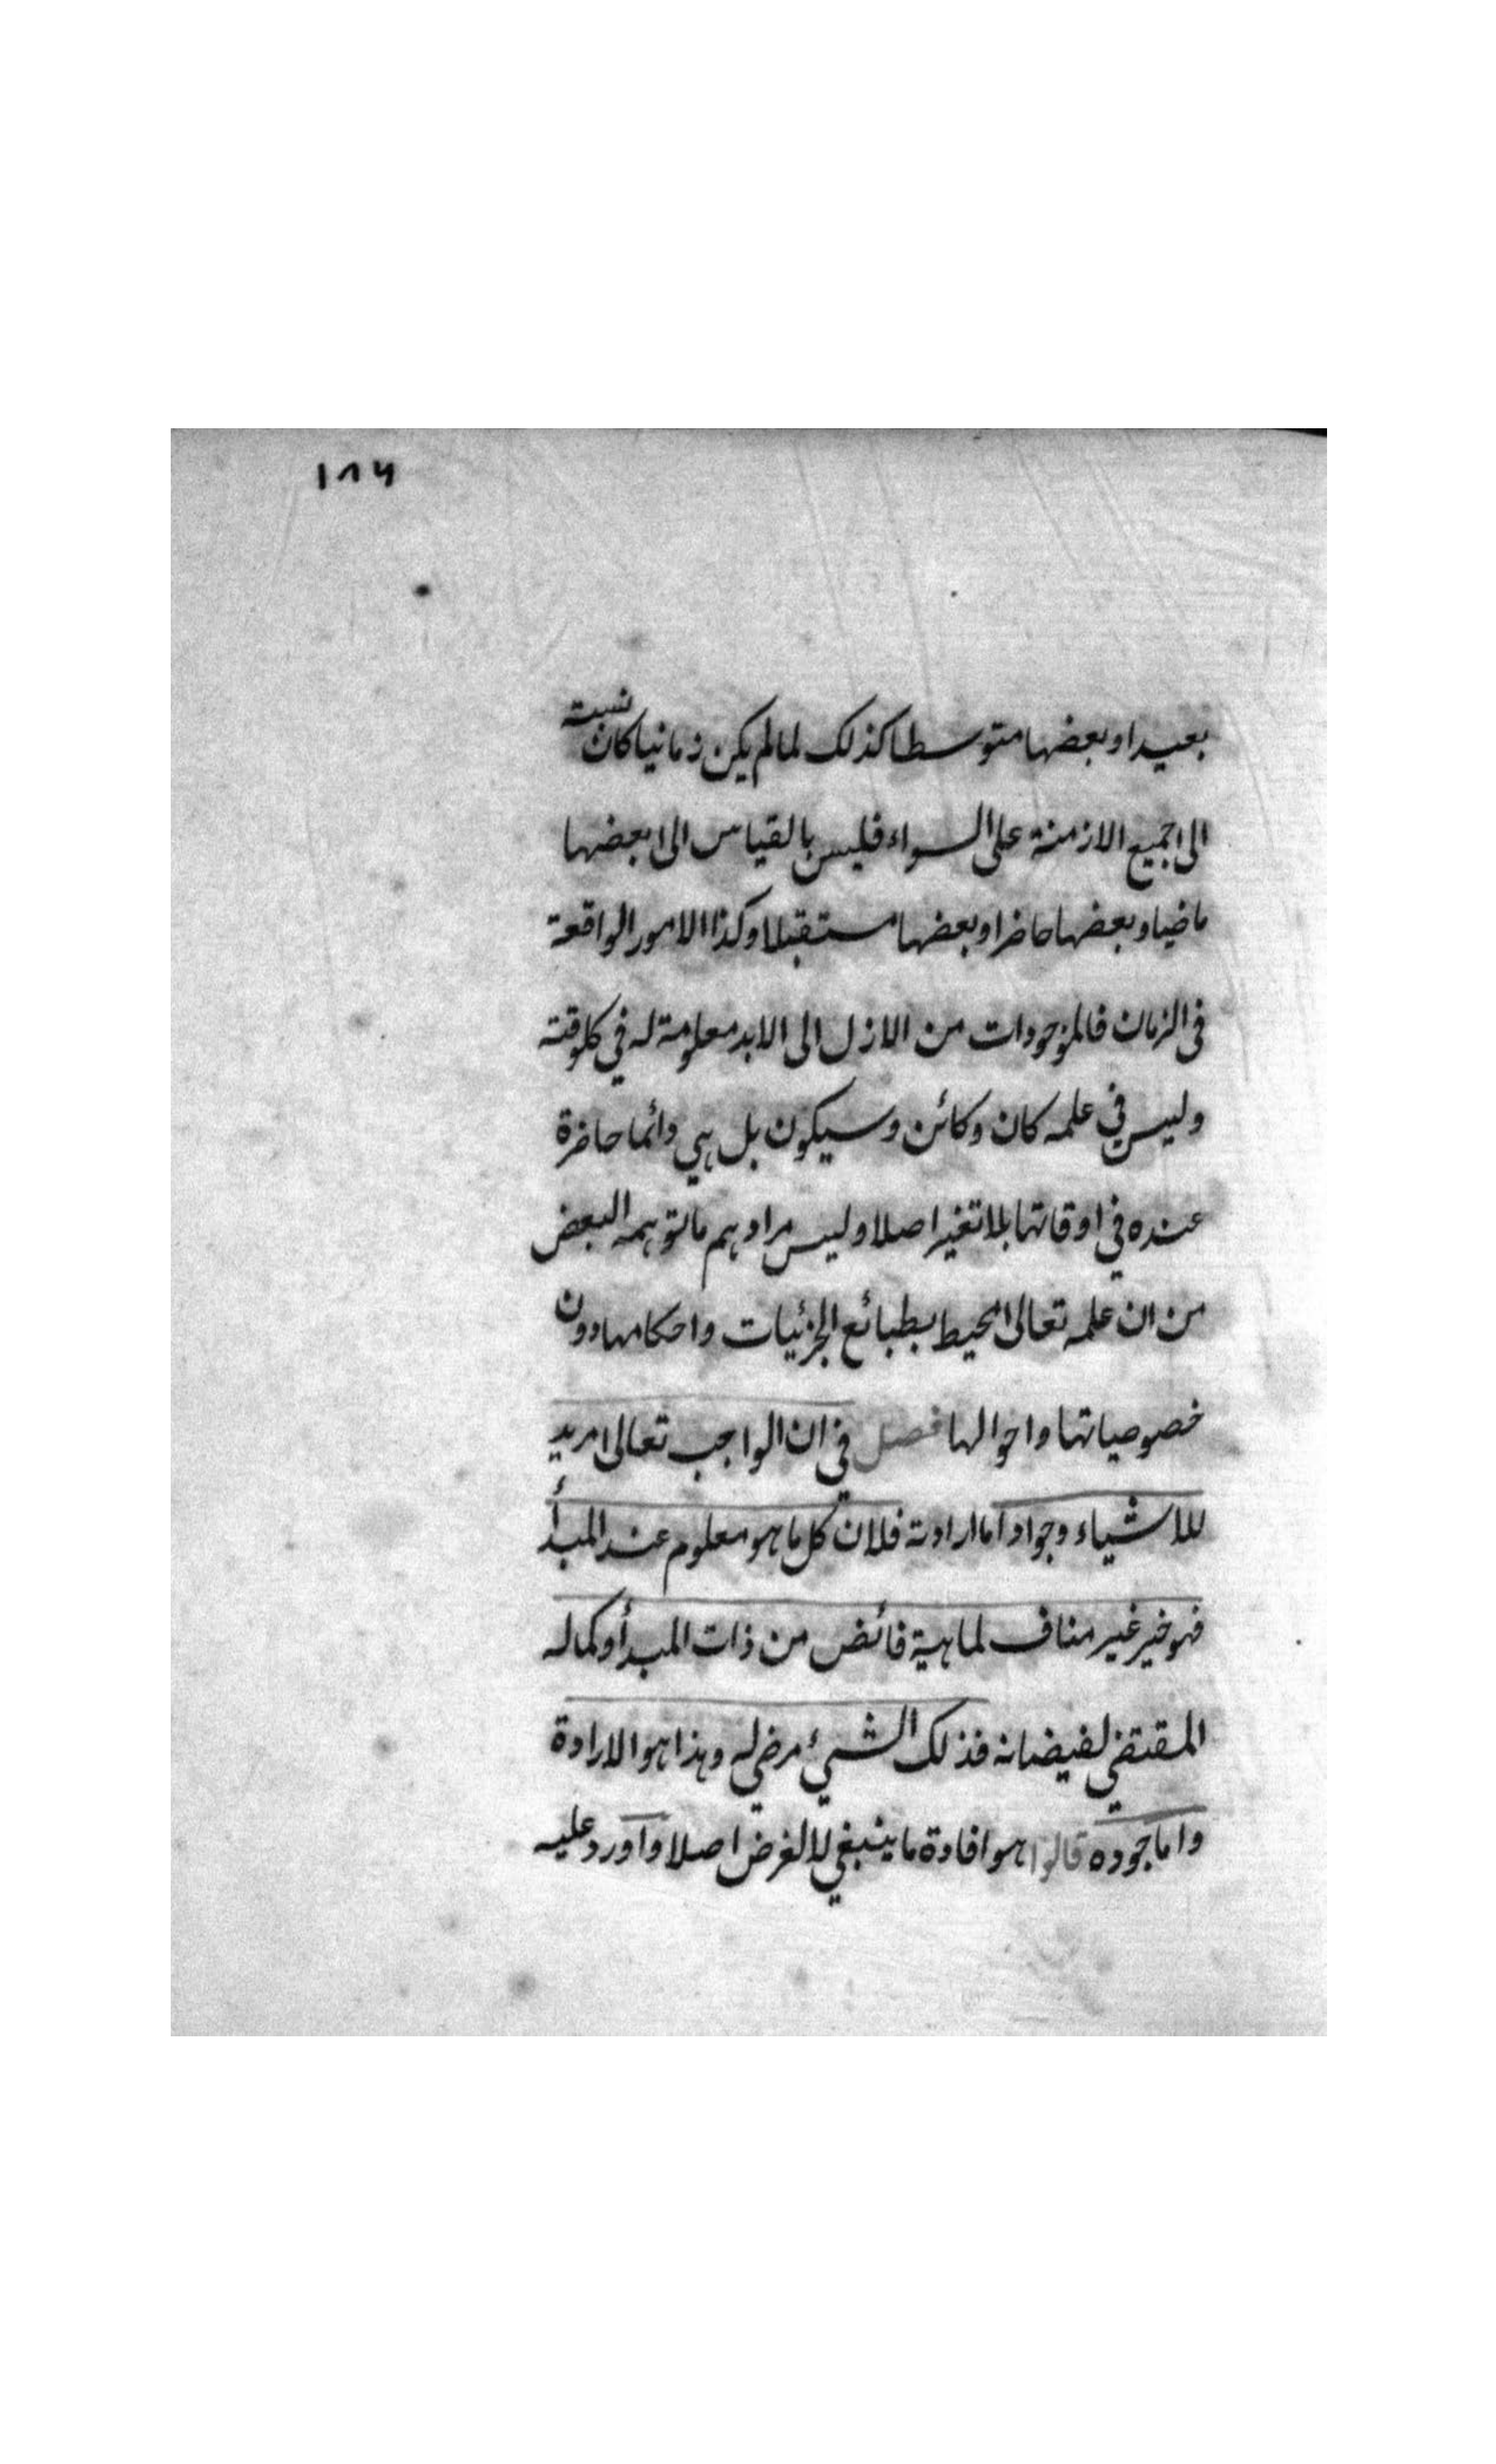 ١٨٦
بعيدا وبعضها متوسطا كذلك لما لم يكن زمانيا كان نسبته
الى جميع الازمنة على السواء فليس بالقياس الى بعضها
ماضيا وبعضها حاضرا وبعضها مستقبلا وكذا الامور الواقعة
فى الزمان فالموجودات من الازل الى الابد معلومة له في كل وقته
وليس في علمه كان وكائن وسيكون بل هي دائما حاضرة
عنده في اوقاتها بلا تغير اصلا وليس مرادهم ما توهمه البعض
من ان علمه تعالى محيط بطبائع الجزئيات واحكامها دون
خصوصياتها واحوالها فصل في ان الواجب تعالى مريد
للاشياء وجواد اما ارادته فلان كل ما هو معلوم عند المبدأ
فهو خير غير مناف لماهية فائض من ذات المبدأ وكماله
المقتضي لفيضانه فذلك الشيئ مرضي له وهذا هو الارادة
واما جوده قالوا هو افادة ما ينبغي لا لغرض اصلا واورد عليه